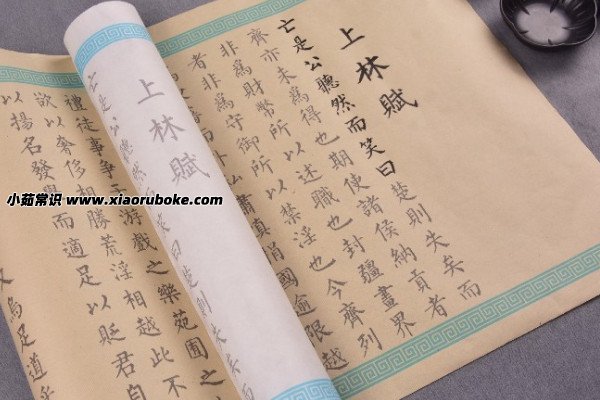 上林賦
亡是公聽然而笑曰楚則失矣而
齊亦未爲得也期使諸侯納貢者
非爲財幣所以述職也封疆畫界
者非爲守御所以禁淫也今齊列
肅慎捐國逾限越
上林賦
亡是公聽然而笑曰楚則失矣而
禮徒事爭游戲之樂苑囿之
欲以奢侈相勝荒淫相越此不
以揚名發譽而適足以貶君自
又烏足道乎
小茹常识 www.xiaoruboke.com